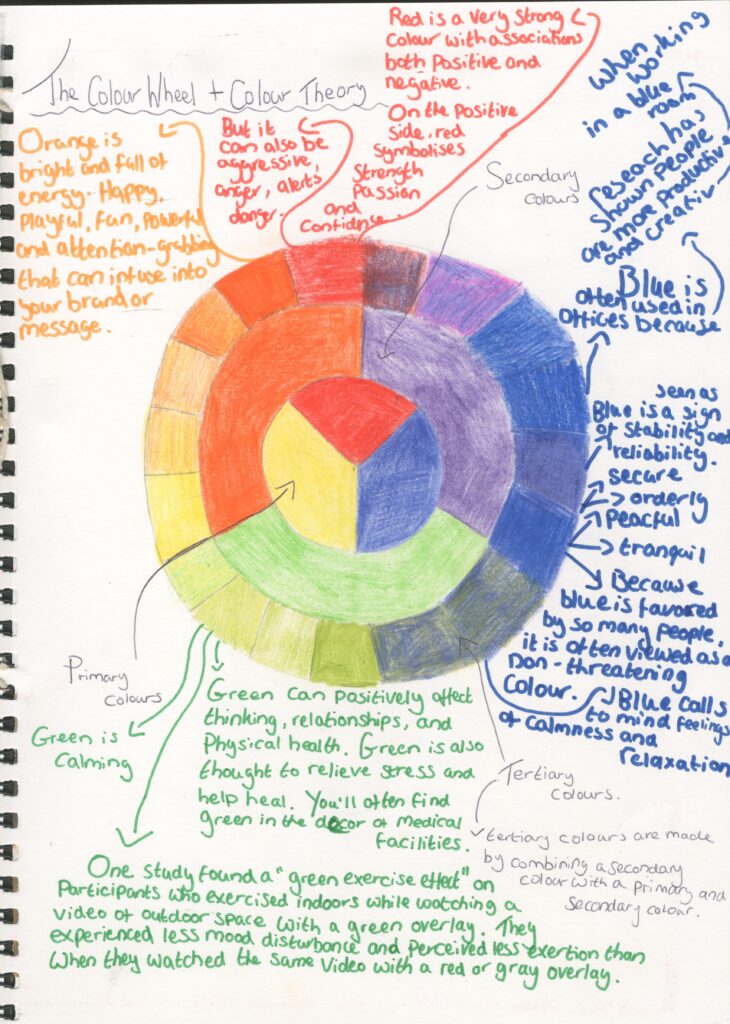 The Colour Wheel + Colour Theory
Orange is
bright and full of
energy. Happy,
Playful, fun, powerful
and attention-grabbing
that can infuse into
your brand or
message.
Red is a very strong
Colour with associations
both Positive and
negative.
On the Positive
side, red
symbolises
Strength
Passion
and
Confidence.
But it
can also be
aggressive,
anger, alerts
danger.
Secondary
colours
Blue is
often used in
offices because
reseach has
shown people
are more productive
and creativ
when
working
in a blue
room
seen as
Blue is a sign
of stability and
reliability.
secure
orderly
Peacful
tranquil
Because
blue is favored
by so many people,
it is often viewed as a
non-threatening
Colour.
Blue calls
to mind feelings
of calmness and
relaxation
Primary
colours
Green is
Calming
Green can positively affect
thinking, relationships, and
Physical health. Green is also
thought to relieve stress and
help heal. You'll often find
green in the decor of medical
facilities.
Tertiary
colours.
tertiary colours are made
by combining a secondary
colour with a primary and
secondary colour.
One study found a "green exercise effect" on
Participants who exercised indoors while watching a
video of outdoor space with a green overlay. They
experienced less mood disturbance and perceived less exertion than
when they watched the same video with a red or gray overlay.